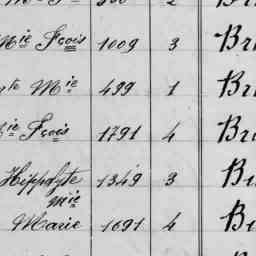 Mie Fcois 1009 3 Br
te Mie 499 1 Br
ie Fcois 1791 4 Br
Hippolyte 1349 3 B
Mie
Marie 1691 4 B